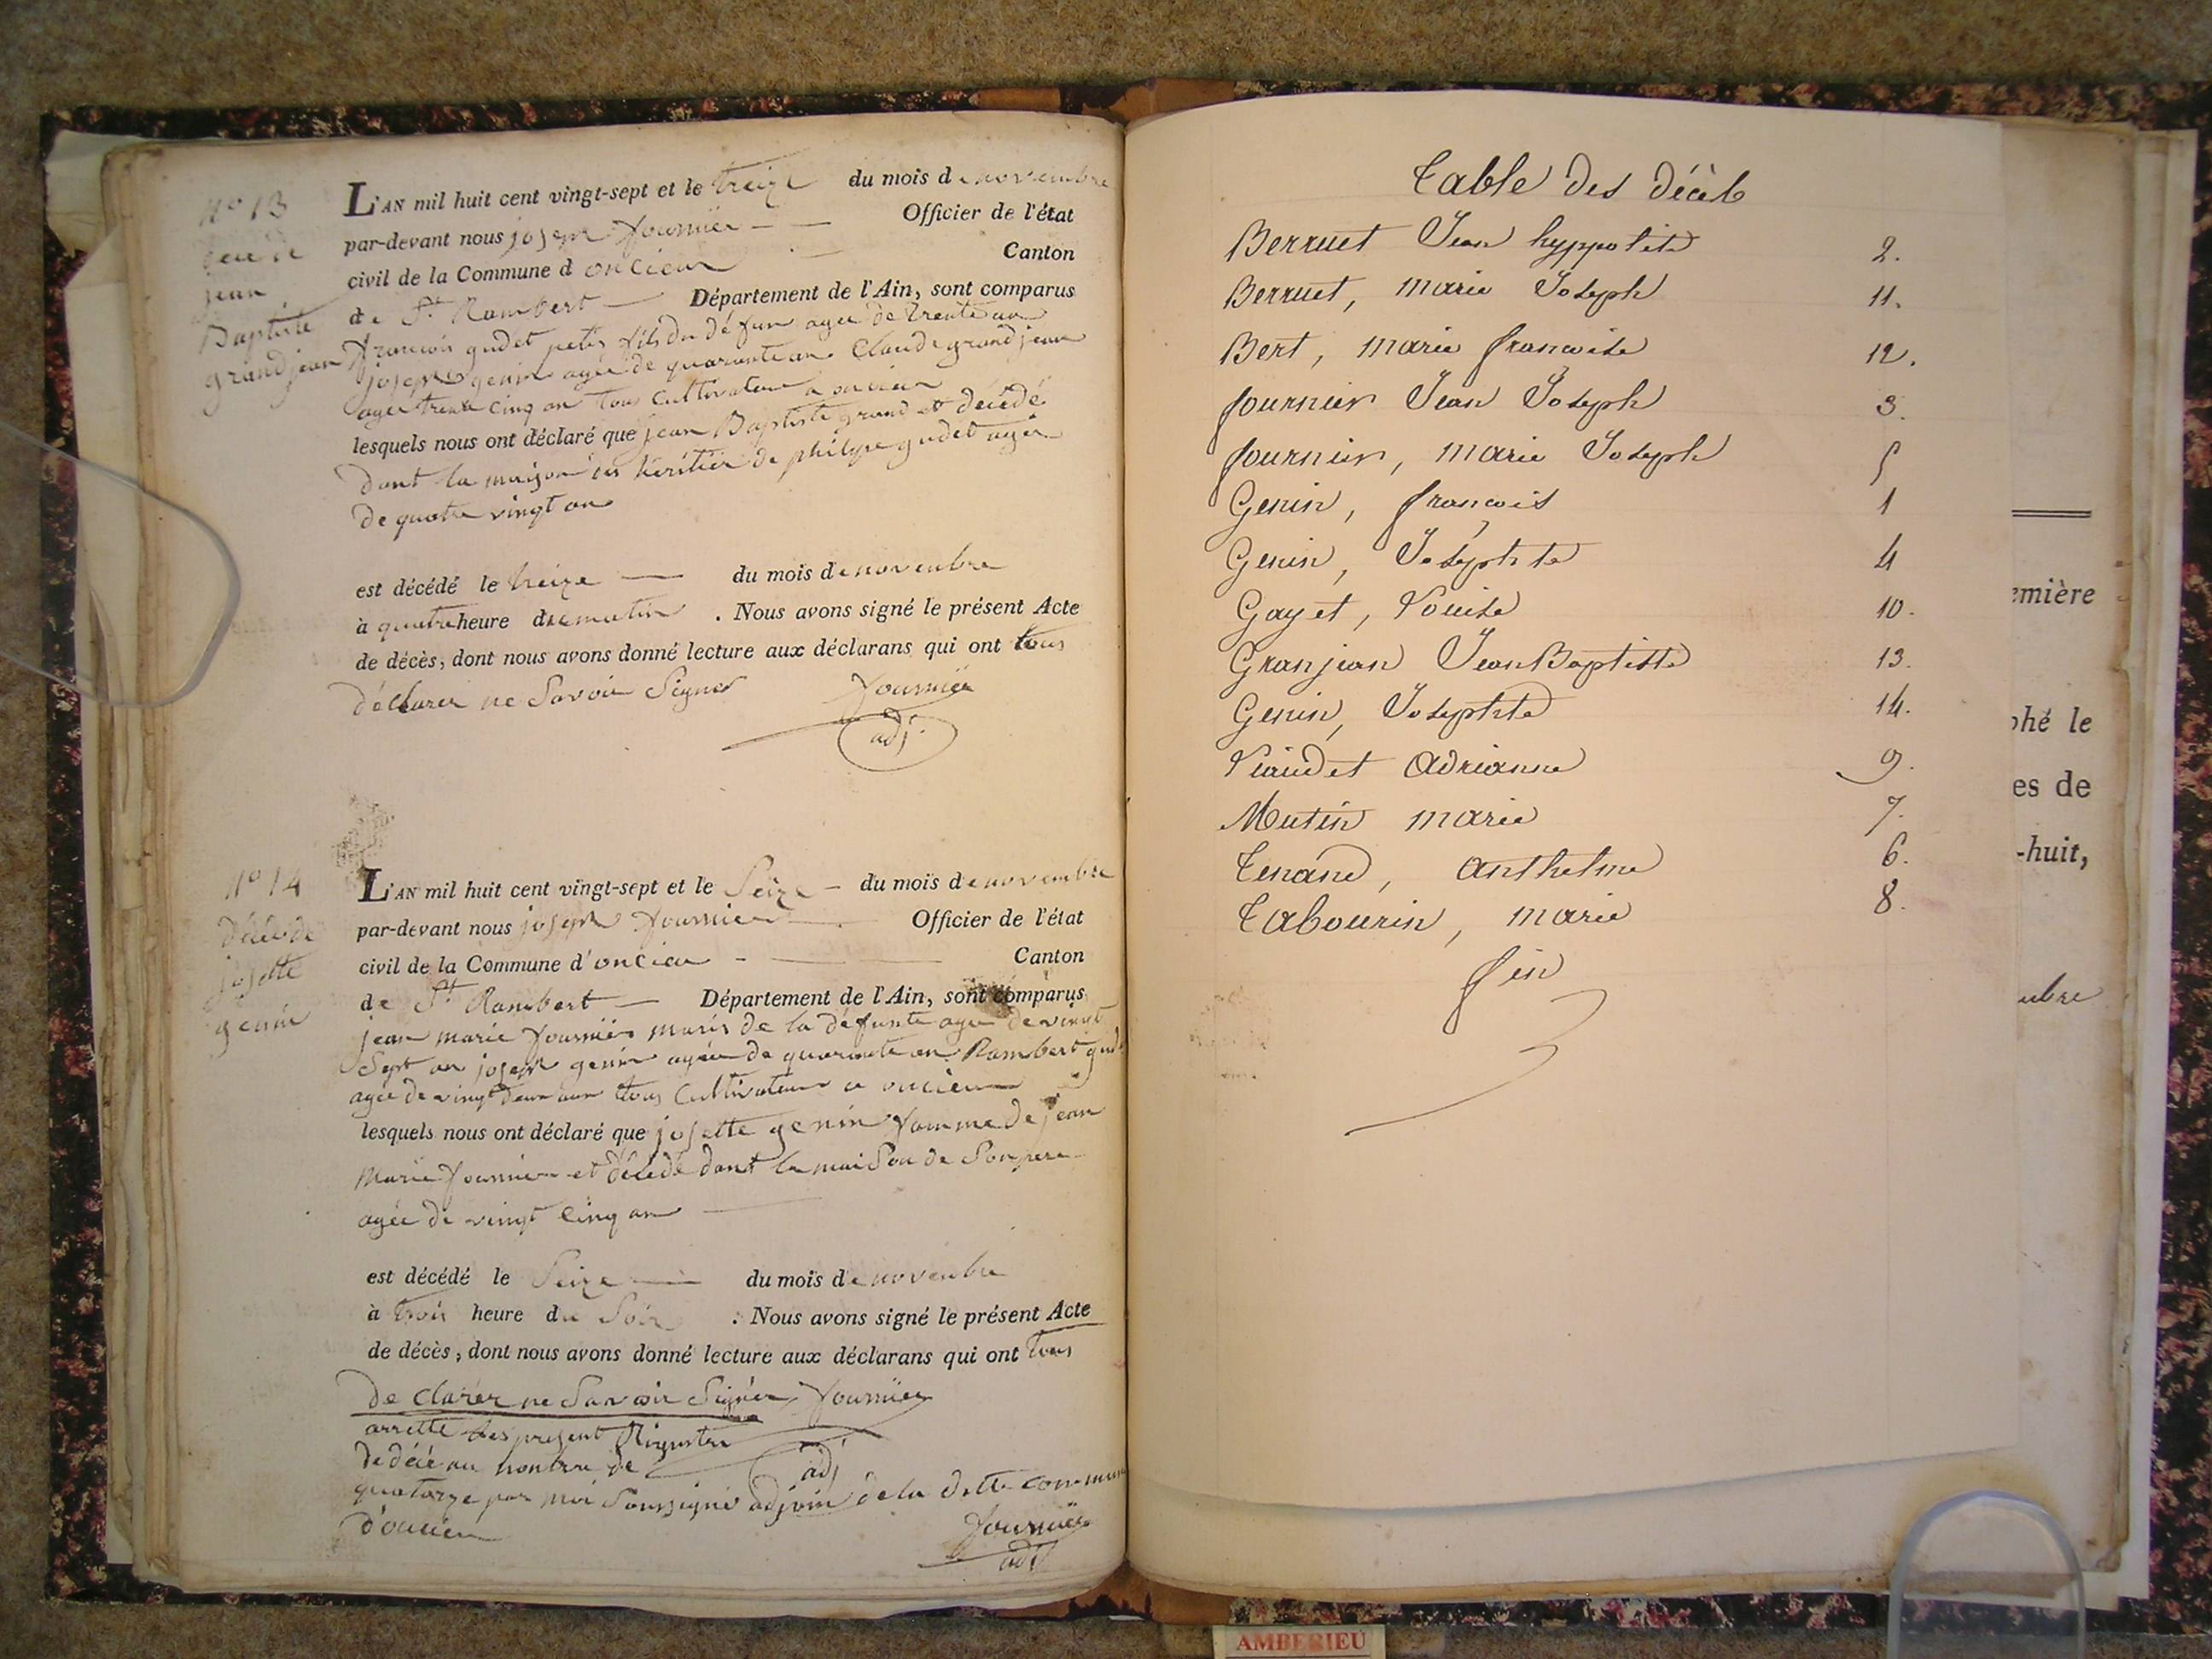 N° 13
jean
Baptiste
grandjean
L'AN mil huit cent vingt-sept et le treize du mois de novembre
par-devant nous joseph fournier Officier de l'état
civil de la Commune d oncieu Canton
de St Rambert Département de l'Ain, sont comparus
francois gudet petis fils du défun agee de trente an
joseph genin agée de quarante an Claude grandjean
agee trente cinq an tous cultivateur a oncieu
lesquels nous ont déclaré que jean Baptiste grand et décédé
dant la maison des héritier de philipe gudet agée
de quatre vingt an
est décédé le treize du mois de novembre
à quatre heure du matin . Nous avons signé le présent Acte
de décès, dont nous avons donné lecture aux déclarans qui ont tous
déclarer ne Savoir Signer fournier
adj.
N° 14
Décé de
josette
genin
L'AN mil huit cent vingt-sept et le Seize du mois de novembre
par-devant nous joseph fournier Officier de l'état
civil de la Commune d'oncieu Canton
de St Rambert Département de l'Ain, sont comparus
jean marie fournier maris de la défunte agee de vingt
Sept an joseph genin agée de quarante an Rambert gudt
agee de vingt deux an tous Cultivateur a oncieu
lesquels nous ont déclaré que josette genin famme de jean
Marie fournier et décédé dant la maison de Son pere
agée de vingt cinq an
est décédé le Seize du mois de novembre
à trois heure du Soir : Nous avons signé le présent Acte
de décès, dont nous avons donné lecture aux déclarans qui ont tous
de clarer ne Savoir Signer fournier
arrette les present Registre
de décé au nonbre de adj
quatorze par moi Soussigné adjoin de la ditte commune
d'oncieu fournier
adj
Table des décès
Berruet Jean hyppolite 2.
Berruet, marie Joseph 11.
Bert, marie francoise 12.
fournier Jean Joseph 3.
fournier, marie Joseph 5
Genin, françois 1
Genin, Josephte 4
Gayet, Louise 10.
Granjean Jean Baptiste 13.
Genin, Josephte 14.
Viaudet Adrianne 9.
Mutin marie 7.
Tenand, Anthelme 6.
Tabourin, marie 8.
fin
emière
phé le
es de
-huit,
mbre
AMBERIEU